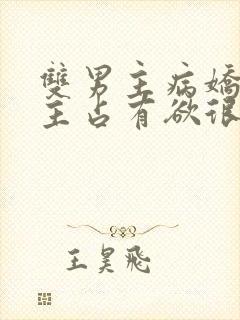 雙男主病嬌
主占有欲很
王昊飛